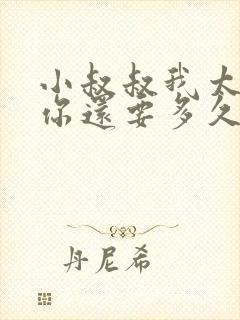 小叔叔我太
你還要多久
丹尼希